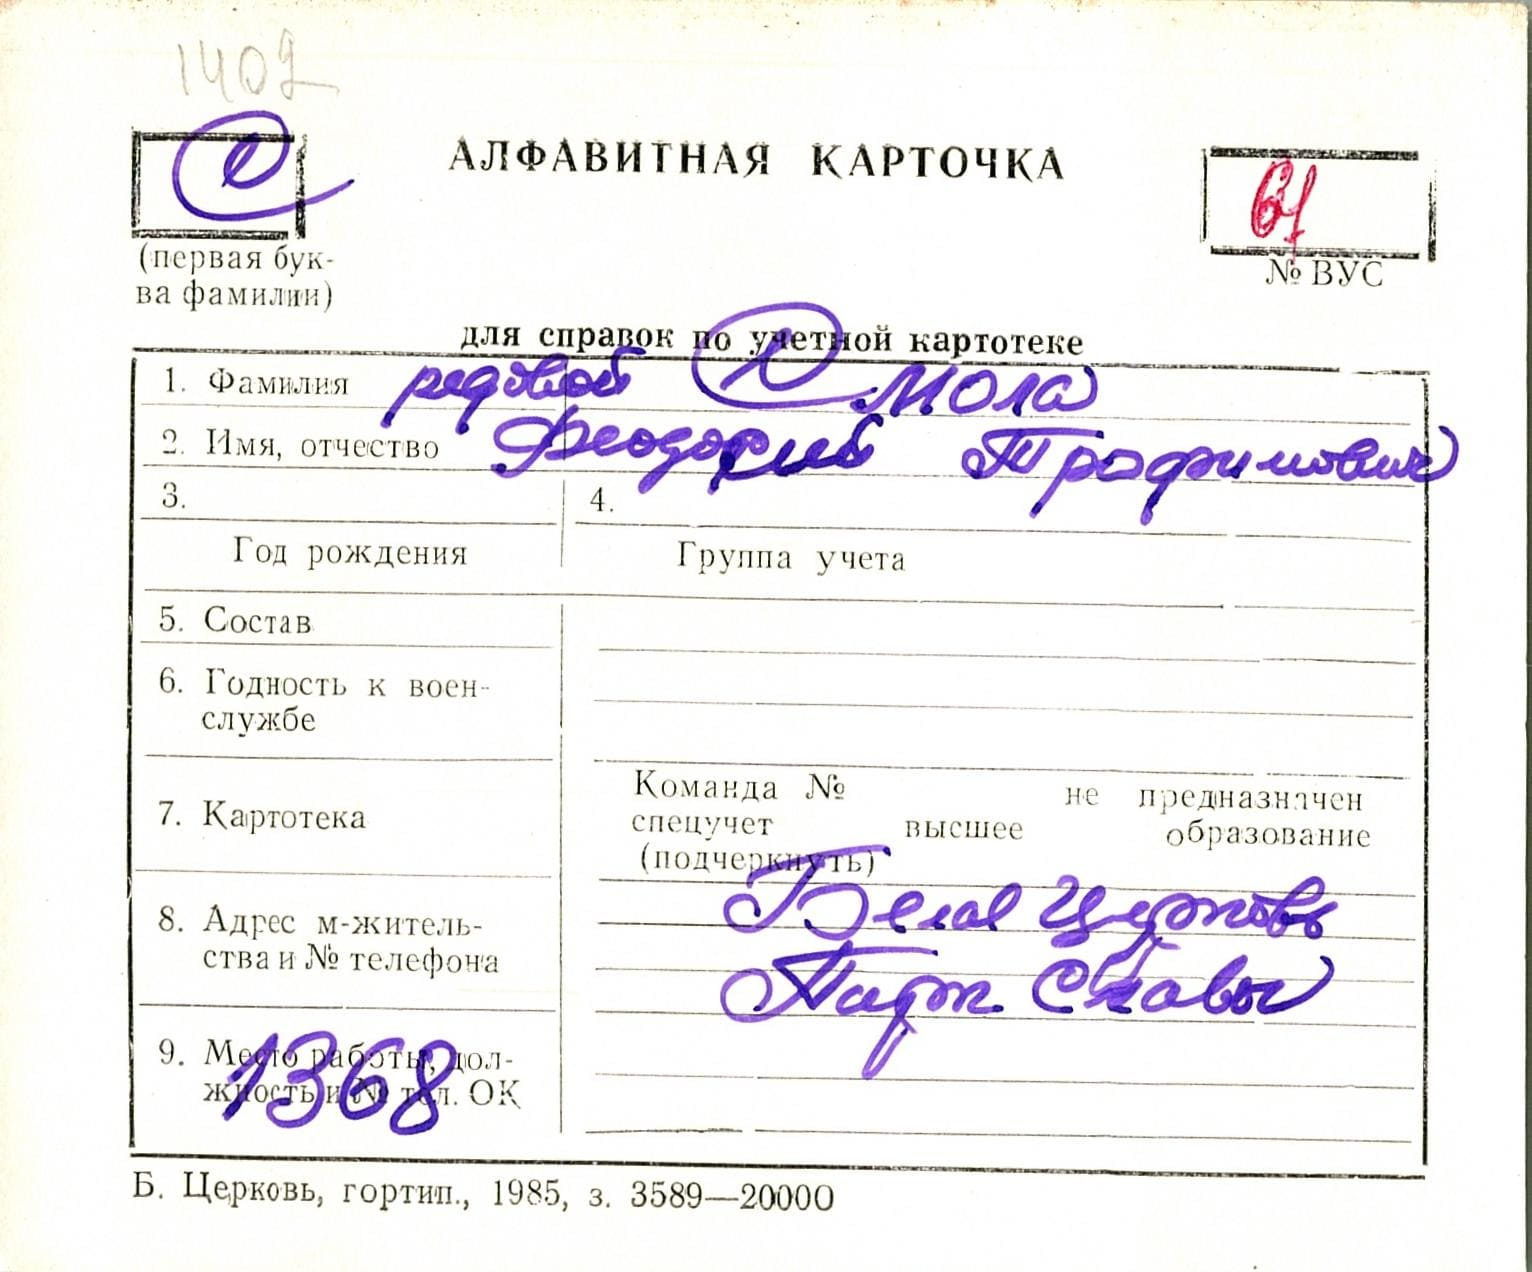 1402
АЛФАВИТНАЯ КАРТОЧКА
61
(первая бук-
ва фамилии)
№ ВУС
для справок по учетной картотеке
1. Фамилия рядовой Смола
2. Имя, отчество Феодосий Трофимович
3. 4.
Год рождения Группа учета
5. Состав
6. Годность к воен-
службе
7. Картотека
Команда № не предназначен
спецучет высшее образование
(подчеркнуть)
8. Адрес м-житель-
ства и № телефона
Белая Церковь
Парк Славы
9. Место работы, дол-
жность и № тел. ОК
1368
Б. Церковь, гортип., 1985, з. 3589—20000